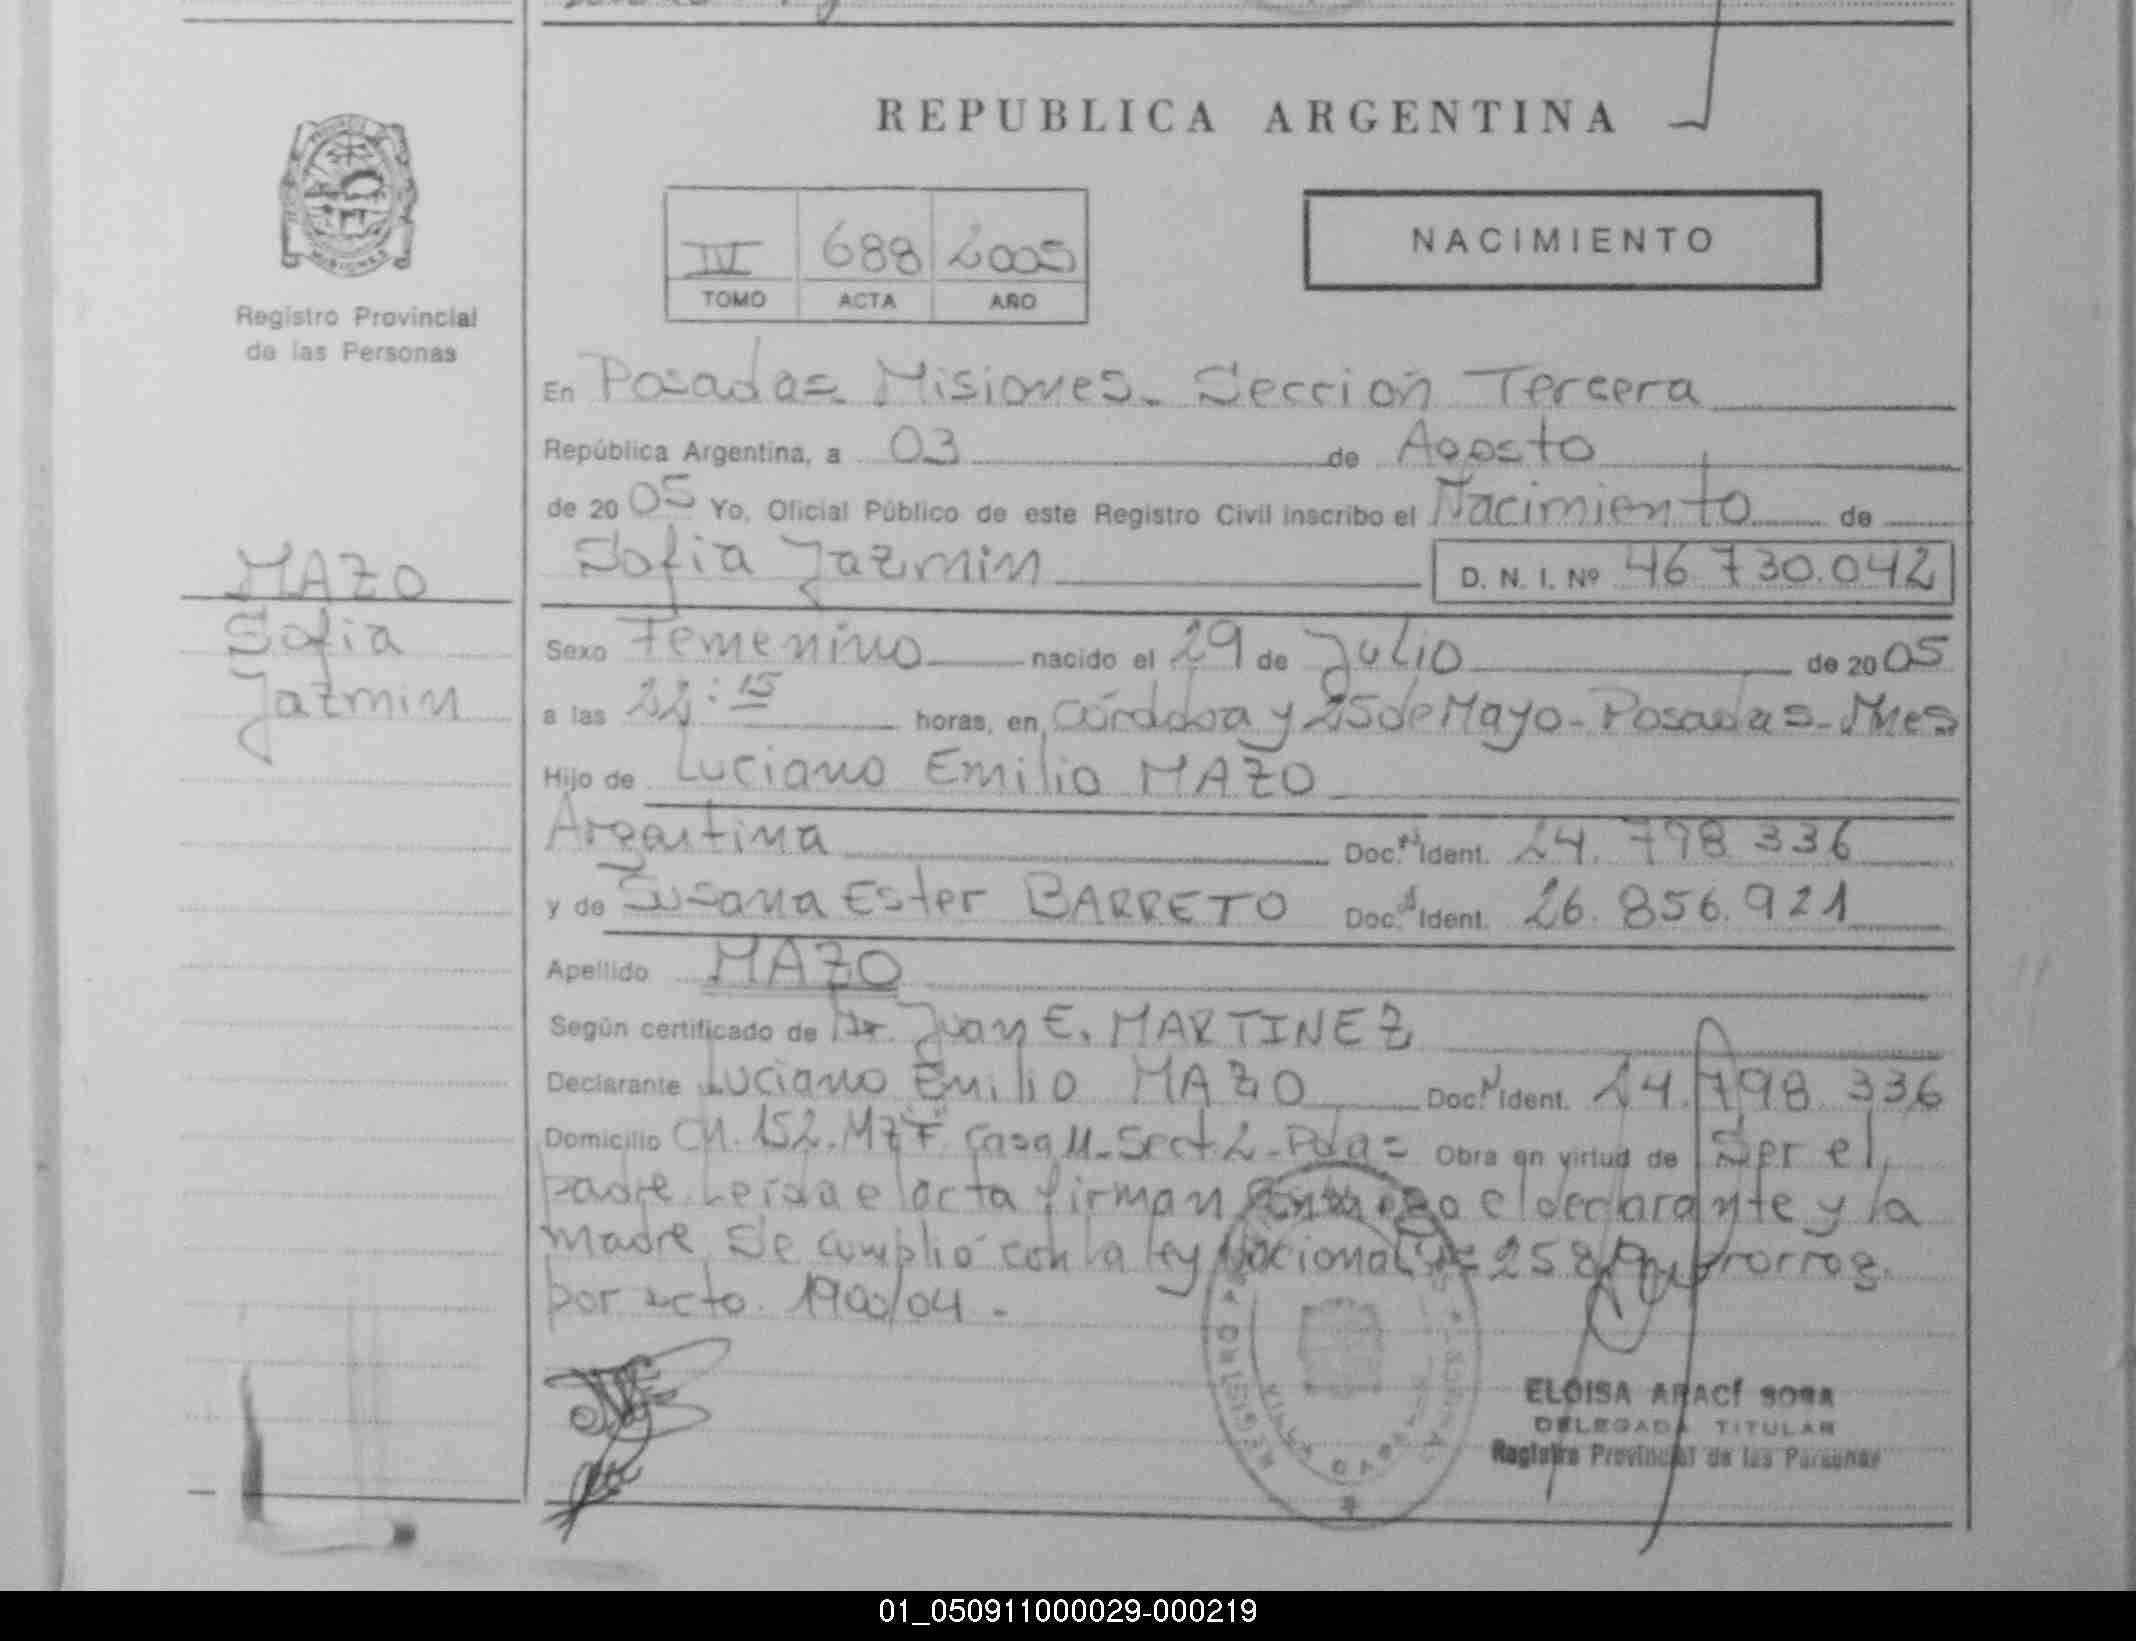 REPUBLICA ARGENTINA
IV 688 2005
TOMO ACTA AÑO
NACIMIENTO
MISIONES
Registro Provincial
de las Personas
MAZO
Sofia
Jazmin
En Posadas - Misiones - Sección Tercera
República Argentina, a 03 de Agosto
de 2005 Yo, Oficial Público de este Registro Civil inscribo el Nacimiento de
Sofia Jazmin D. N. I. Nº 46.730.042
Sexo Femenino nacido el 29 de Julio de 2005
a las 22:15 horas, en Córdoba y 25 de Mayo - Posadas - Mnes
Hijo de Luciano Emilio MAZO
Argentina Doc. Ident. 24.798.336
y de Susana Ester BARRETO Doc. Ident. 26.856.921
Apellido MAZO
Según certificado de Dr. Juan E. MARTINEZ
Declarante Luciano Emilio MAZO Doc. Ident. 24.798.336
Domicilio CH. 152. Mz "F" Casa 11 - Sect. 2 - Pdas Obra en virtud de Ser el
padre. Leida el acta firman el declarante y la
madre. Se cumplió con la ley Nacional prorrog.
por
ELOISA ARACÍ SOSA
DELEGADA TITULAR
Registro Provincial de las Personas
01_050911000029-000219